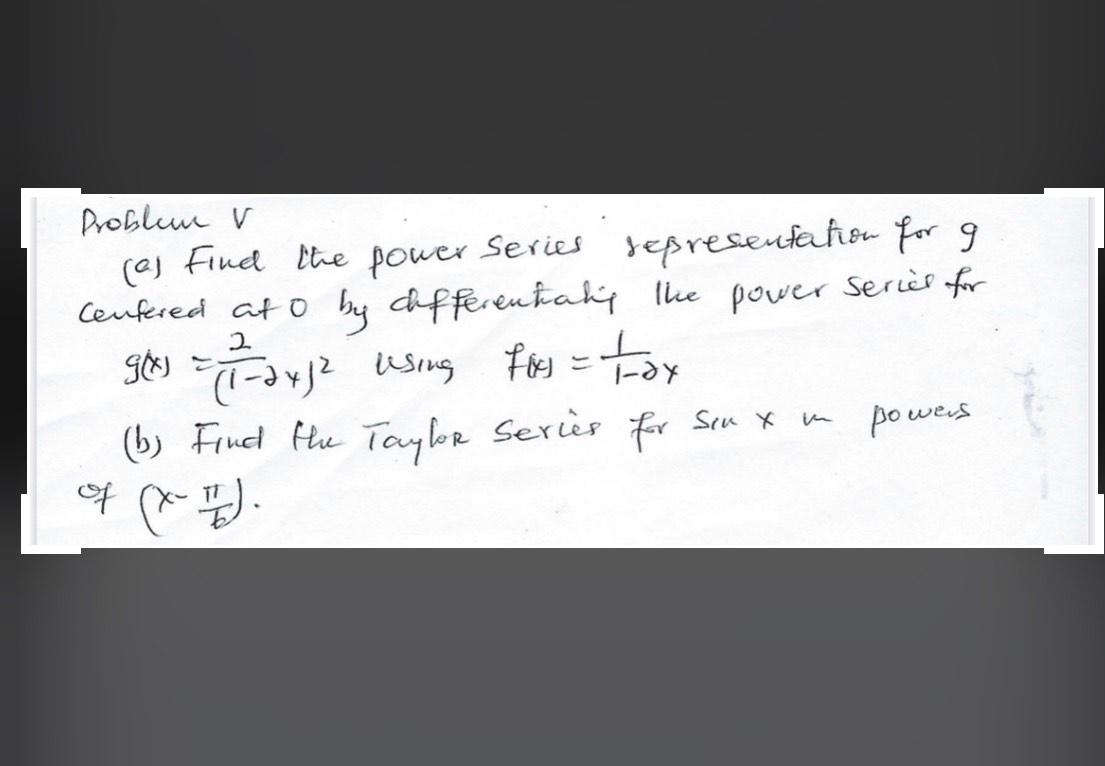 Problem V
(a) Find the power series representation for g
centered at 0 by differentiating the power series for
g(x) = 2/(1-2x)² using f(x) = 1/1-2x
(b) Find the Taylor series for sin x in powers
of (x - π/6).